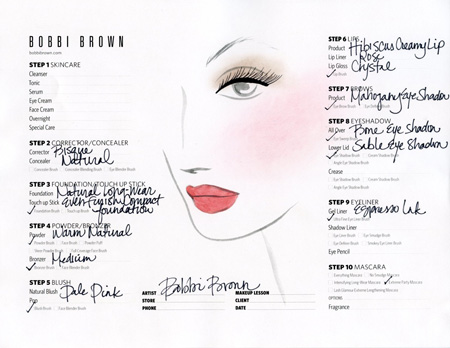 BOBBI BROWN
bobbibrown.com
STEP 1 SKINCARE
Cleanser
Tonic
Serum
Eye Cream
Face Cream
Overnight
Special Care
STEP 2 CORRECTOR/CONCEALER
Corrector Bisque
Concealer Natural
Concealer Brush Concealer Blending Brush Eye Blender Brush
STEP 3 FOUNDATION/TOUCH UP STICK
Foundation Natural Long-Wear
Touch up Stick Even Finish Compact
Foundation Brush Touch up Brush foundation
STEP 4 POWDER/BRONZER
Powder Warm Natural
Powder Brush Face Brush Powder Puff
Sheer Powder Brush Full Coverage Face Brush
Bronzer Medium
Bronzer Brush Face Blender Brush
STEP 5 BLUSH
Natural Blush Pale Pink
Pop
Blush Brush Face Blender Brush
ARTIST Bobbi Brown MAKEUP LESSON
STORE CLIENT
PHONE DATE
STEP 6 LIPS
Product Hibiscus Creamy Lip
Lip Liner Rose
Lip Gloss Crystal
Lip Brush
STEP 7 BROWS
Product Mahogany Eye Shadow
Brow Brush Eye Definer Brush
STEP 8 EYESHADOW
All Over Bone Eye Shadow
Eye Sweep Brush
Lower Lid Sable Eye Shadow
Eye Shadow Brush Cream Shadow Brush
Angle Eye Shadow Brush
Crease
Eye Shadow Brush Cream Shadow Brush
Angle Eye Shadow Brush
STEP 9 EYELINER
Gel Liner Espresso Ink
Ultra Fine Eye Liner Brush
Shadow Liner
Eye Liner Brush Eye Smudge Brush
Eye Definer Brush Smokey Eye Liner Brush
Eye Pencil
STEP 10 MASCARA
Everything Mascara No Smudge Mascara
Intensifying Long-Wear Mascara Extreme Party Mascara
Lash Glamour Extreme Lengthening Mascara
OPTIONS
Fragrance